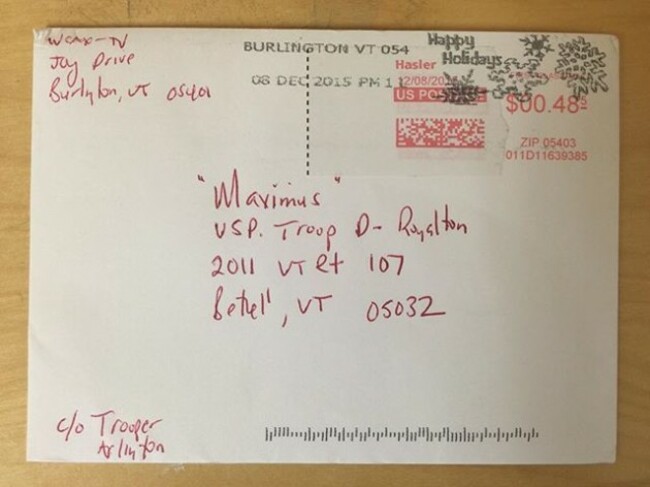 WCAX-TV
Joy Drive
Burlington, VT 05401
BURLINGTON VT 054
08 DEC 2015 PM 1
Happy
Holidays
Hasler
12/08/20
US PO
$00.48⁵
ZIP 05403
011D11639385
"Maximus"
VSP. Troop D - Royalton
2011 VT Rt 107
Bethel, VT 05032
c/o Trooper
Arlington